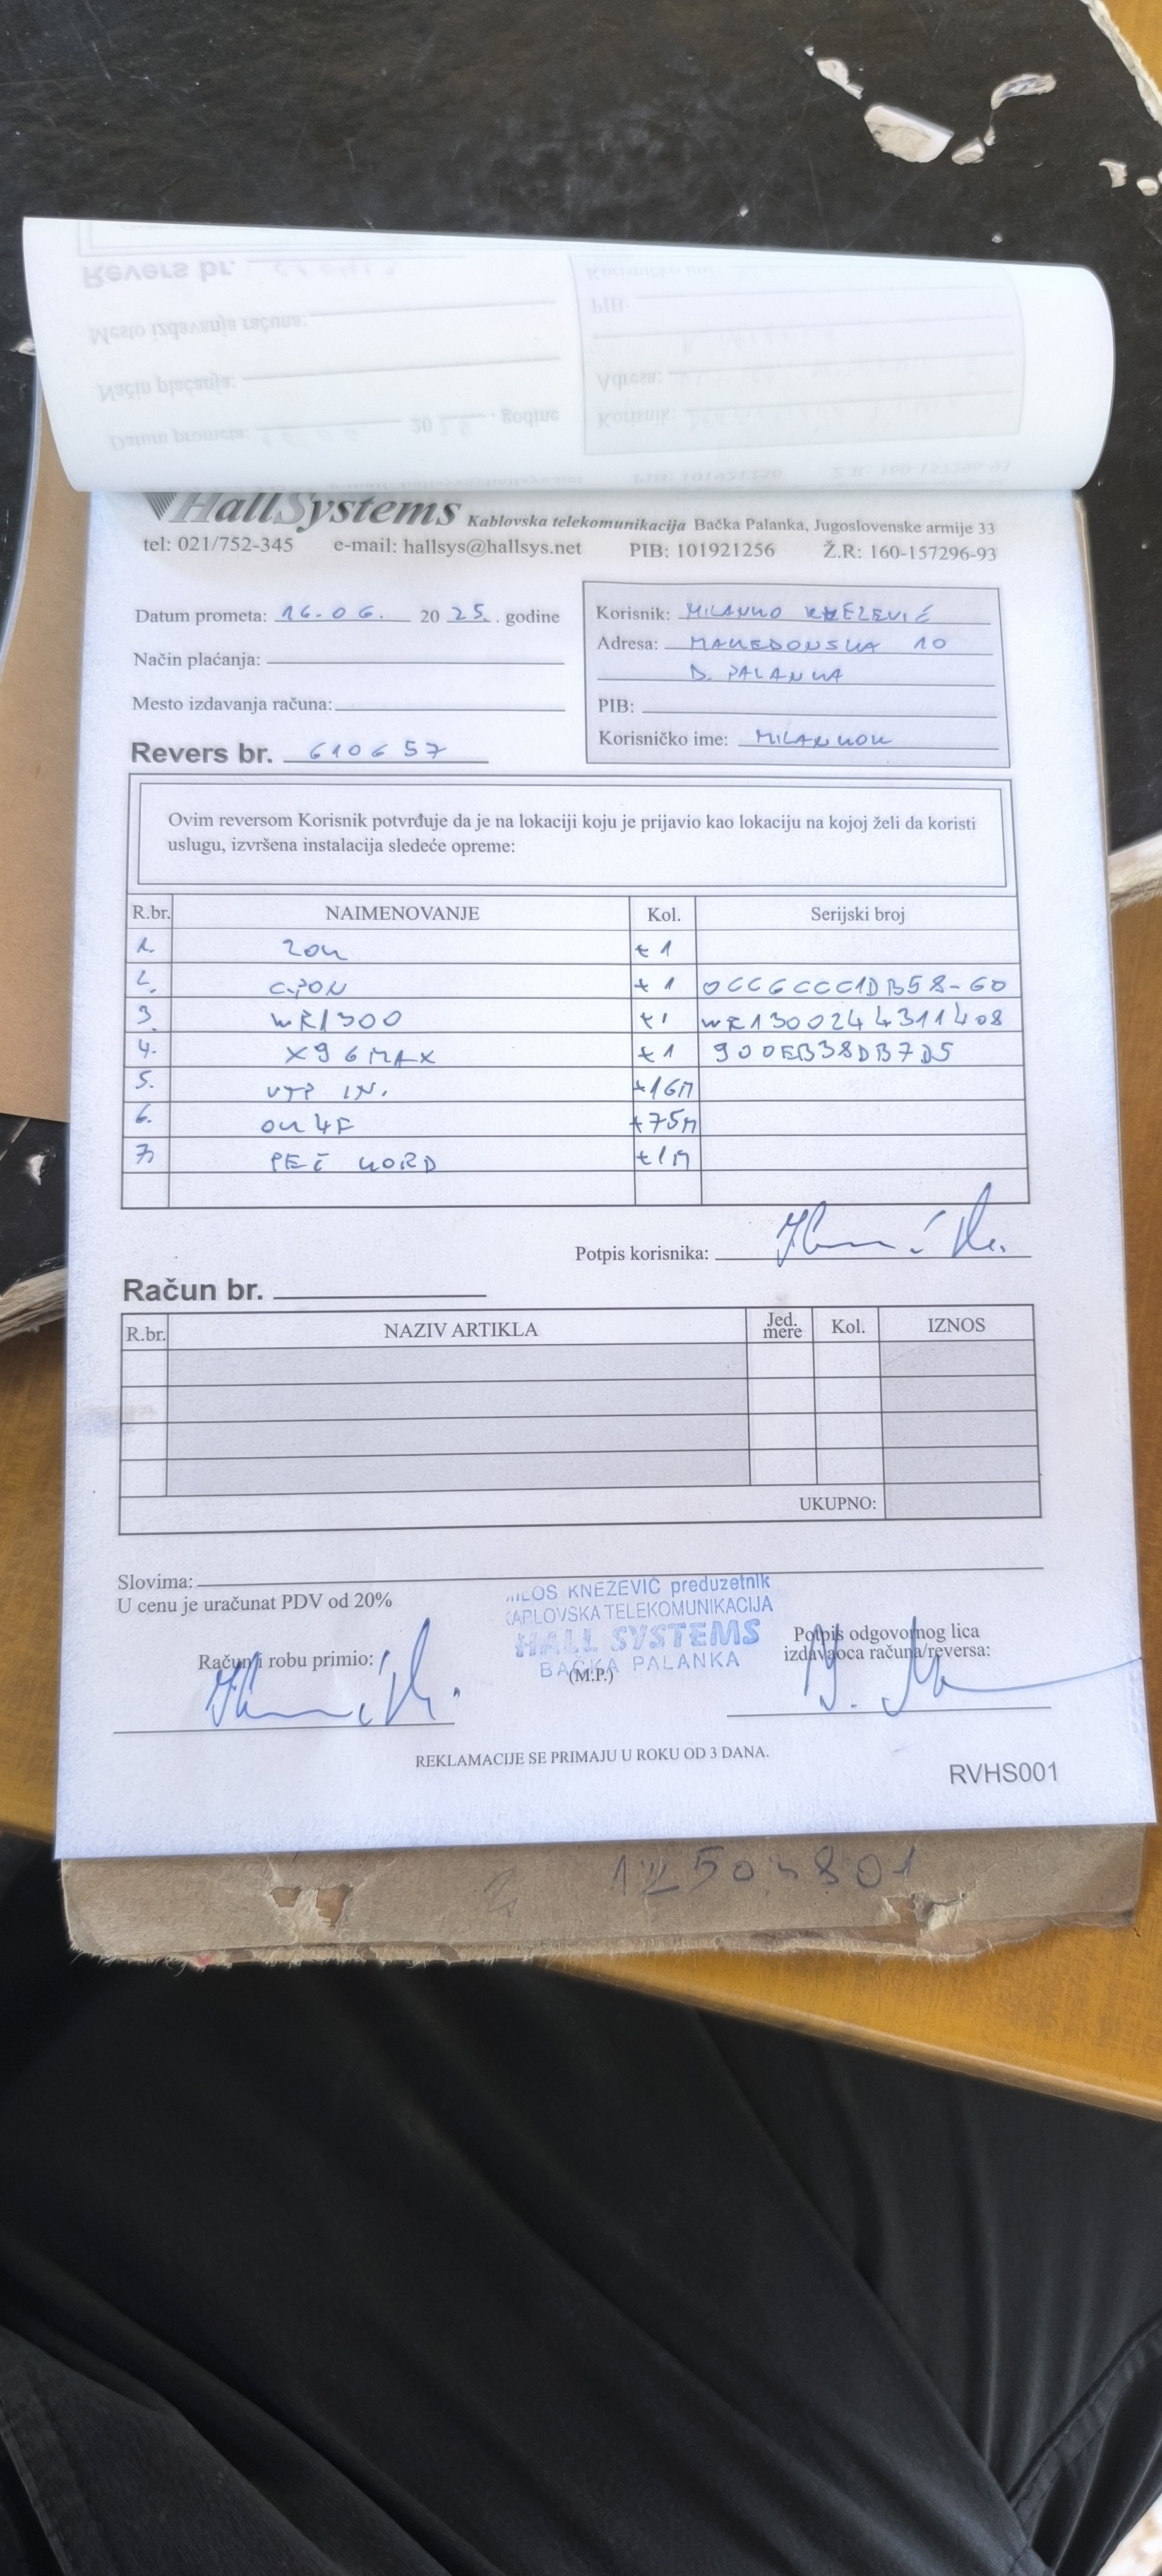 HallSystems Kablovska telekomunikacija Bačka Palanka, Jugoslovenske armije 33
tel: 021/752-345 e-mail: hallsys@hallsys.net PIB: 101921256 Ž.R: 160-157296-93
Datum prometa: 16.06. 20 25. godine
Način plaćanja:
Mesto izdavanja računa:
Revers br. 610657
Korisnik: MILANKO KNEŽEVIĆ
Adresa: MAKEDONSKA 10
B. PALANKA
PIB:
Korisničko ime: MILANKOK
Ovim reversom Korisnik potvrđuje da je na lokaciji koju je prijavio kao lokaciju na kojoj želi da koristi
uslugu, izvršena instalacija sledeće opreme:
R.br. NAIMENOVANJE Kol. Serijski broj
1. ZOK +1
2. GPON +1 0CC6CCC1DB58-60
3. WR1300 +1 WR1300244311408
4. X96MAX +1 900EB38DB7D5
5. UTP IN. +16M
6. OK 4F +75M
7. PEČ KORD +1M
Potpis korisnika:
Račun br.
R.br. NAZIV ARTIKLA Jed. mere Kol. IZNOS
UKUPNO:
Slovima:
U cenu je uračunat PDV od 20%
MILOŠ KNEŽEVIĆ preduzetnik
KABLOVSKA TELEKOMUNIKACIJA
HALL SYSTEMS
BAČKA PALANKA
(M.P.)
Račun i robu primio:
Potpis odgovornog lica
izdavaoca računa/reversa:
REKLAMACIJE SE PRIMAJU U ROKU OD 3 DANA.
RVHS001